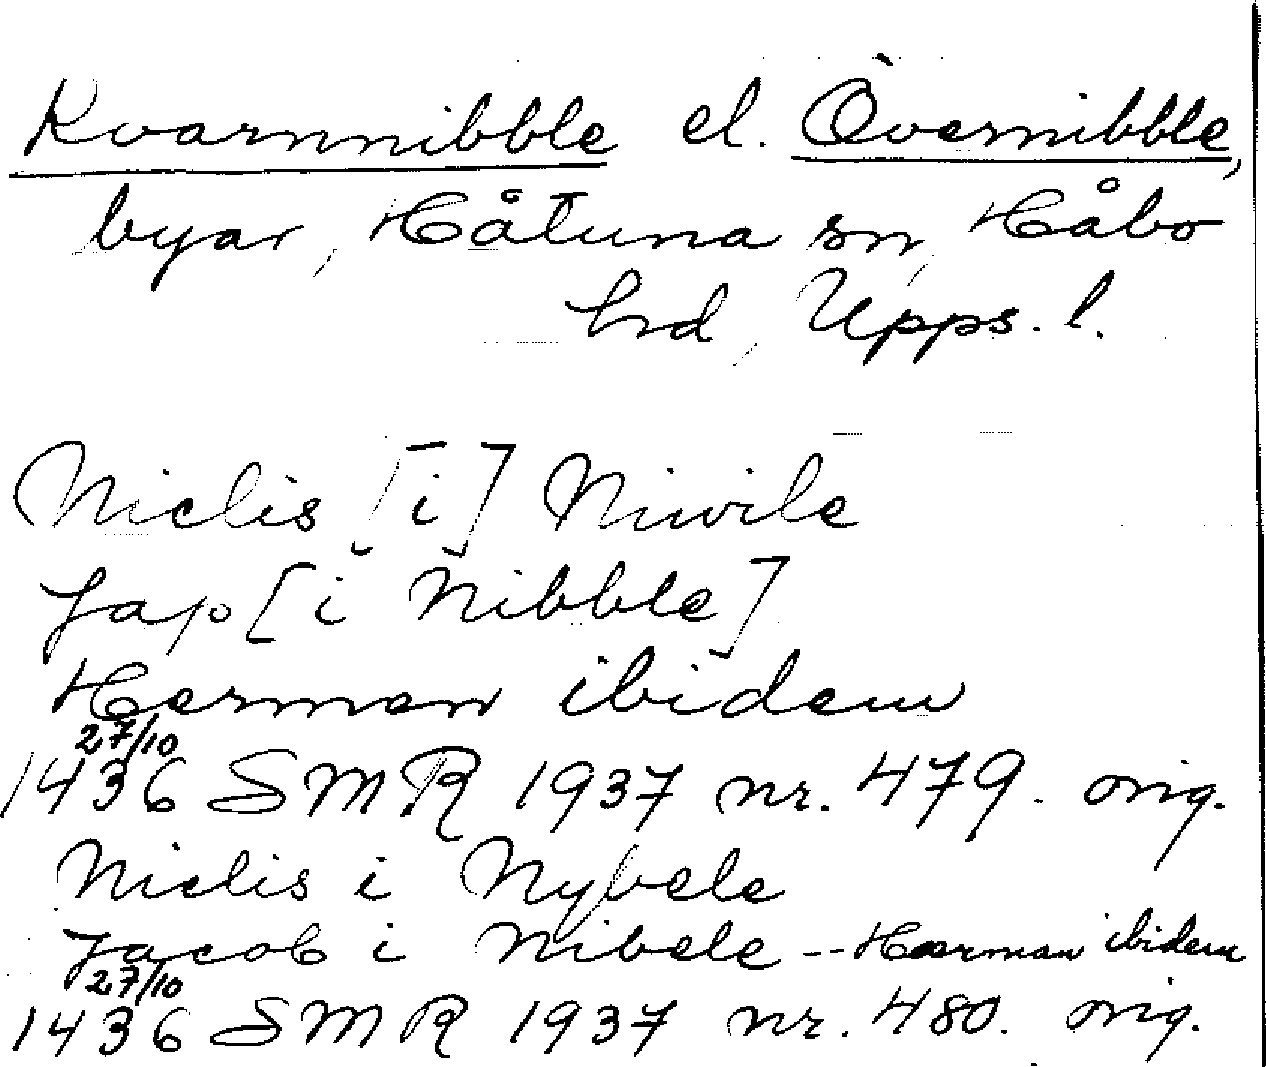 Kvarnnibble el. Övernibble,
byar, Håtuna sn, Håbo
hd, Upps. l.
Niclis [i] Niwile
Jap [i Nibble]
Herman ibidem
27/10
1436 SMR 1937 nr. 479. orig.
Niclis i Nybele
Jacob i Nibele -- Hærman ibidem
27/10
1436 SMR 1937 nr. 480. orig.